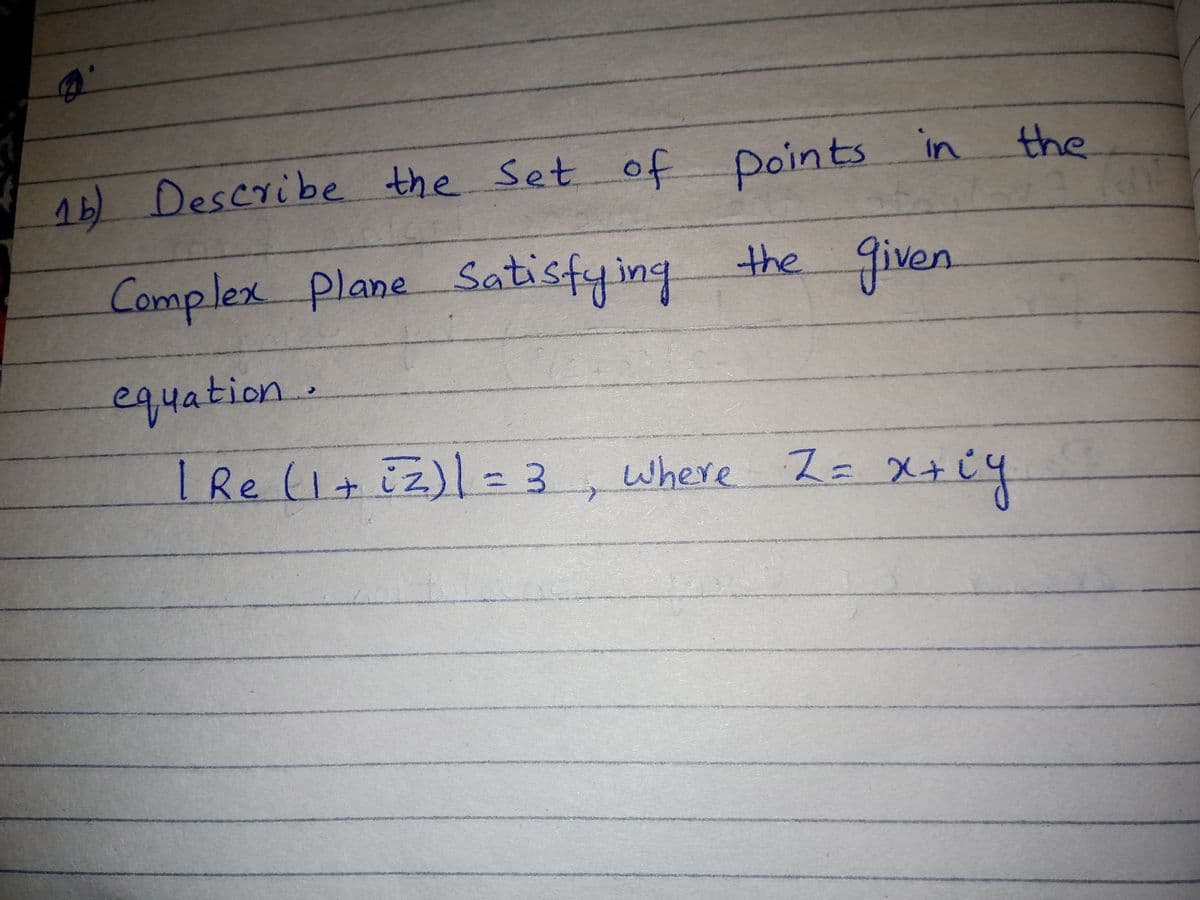 1b) Describe the Set of points in the
Complex Plane Satisfying the given
equation.
| Re (1 + i̅z̅)| = 3 , where Z = x+iy